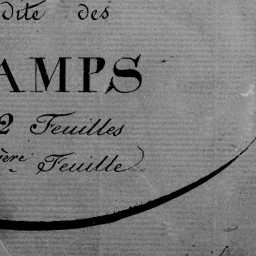 dite des
AMPS
2 Feuilles
ère Feuille)